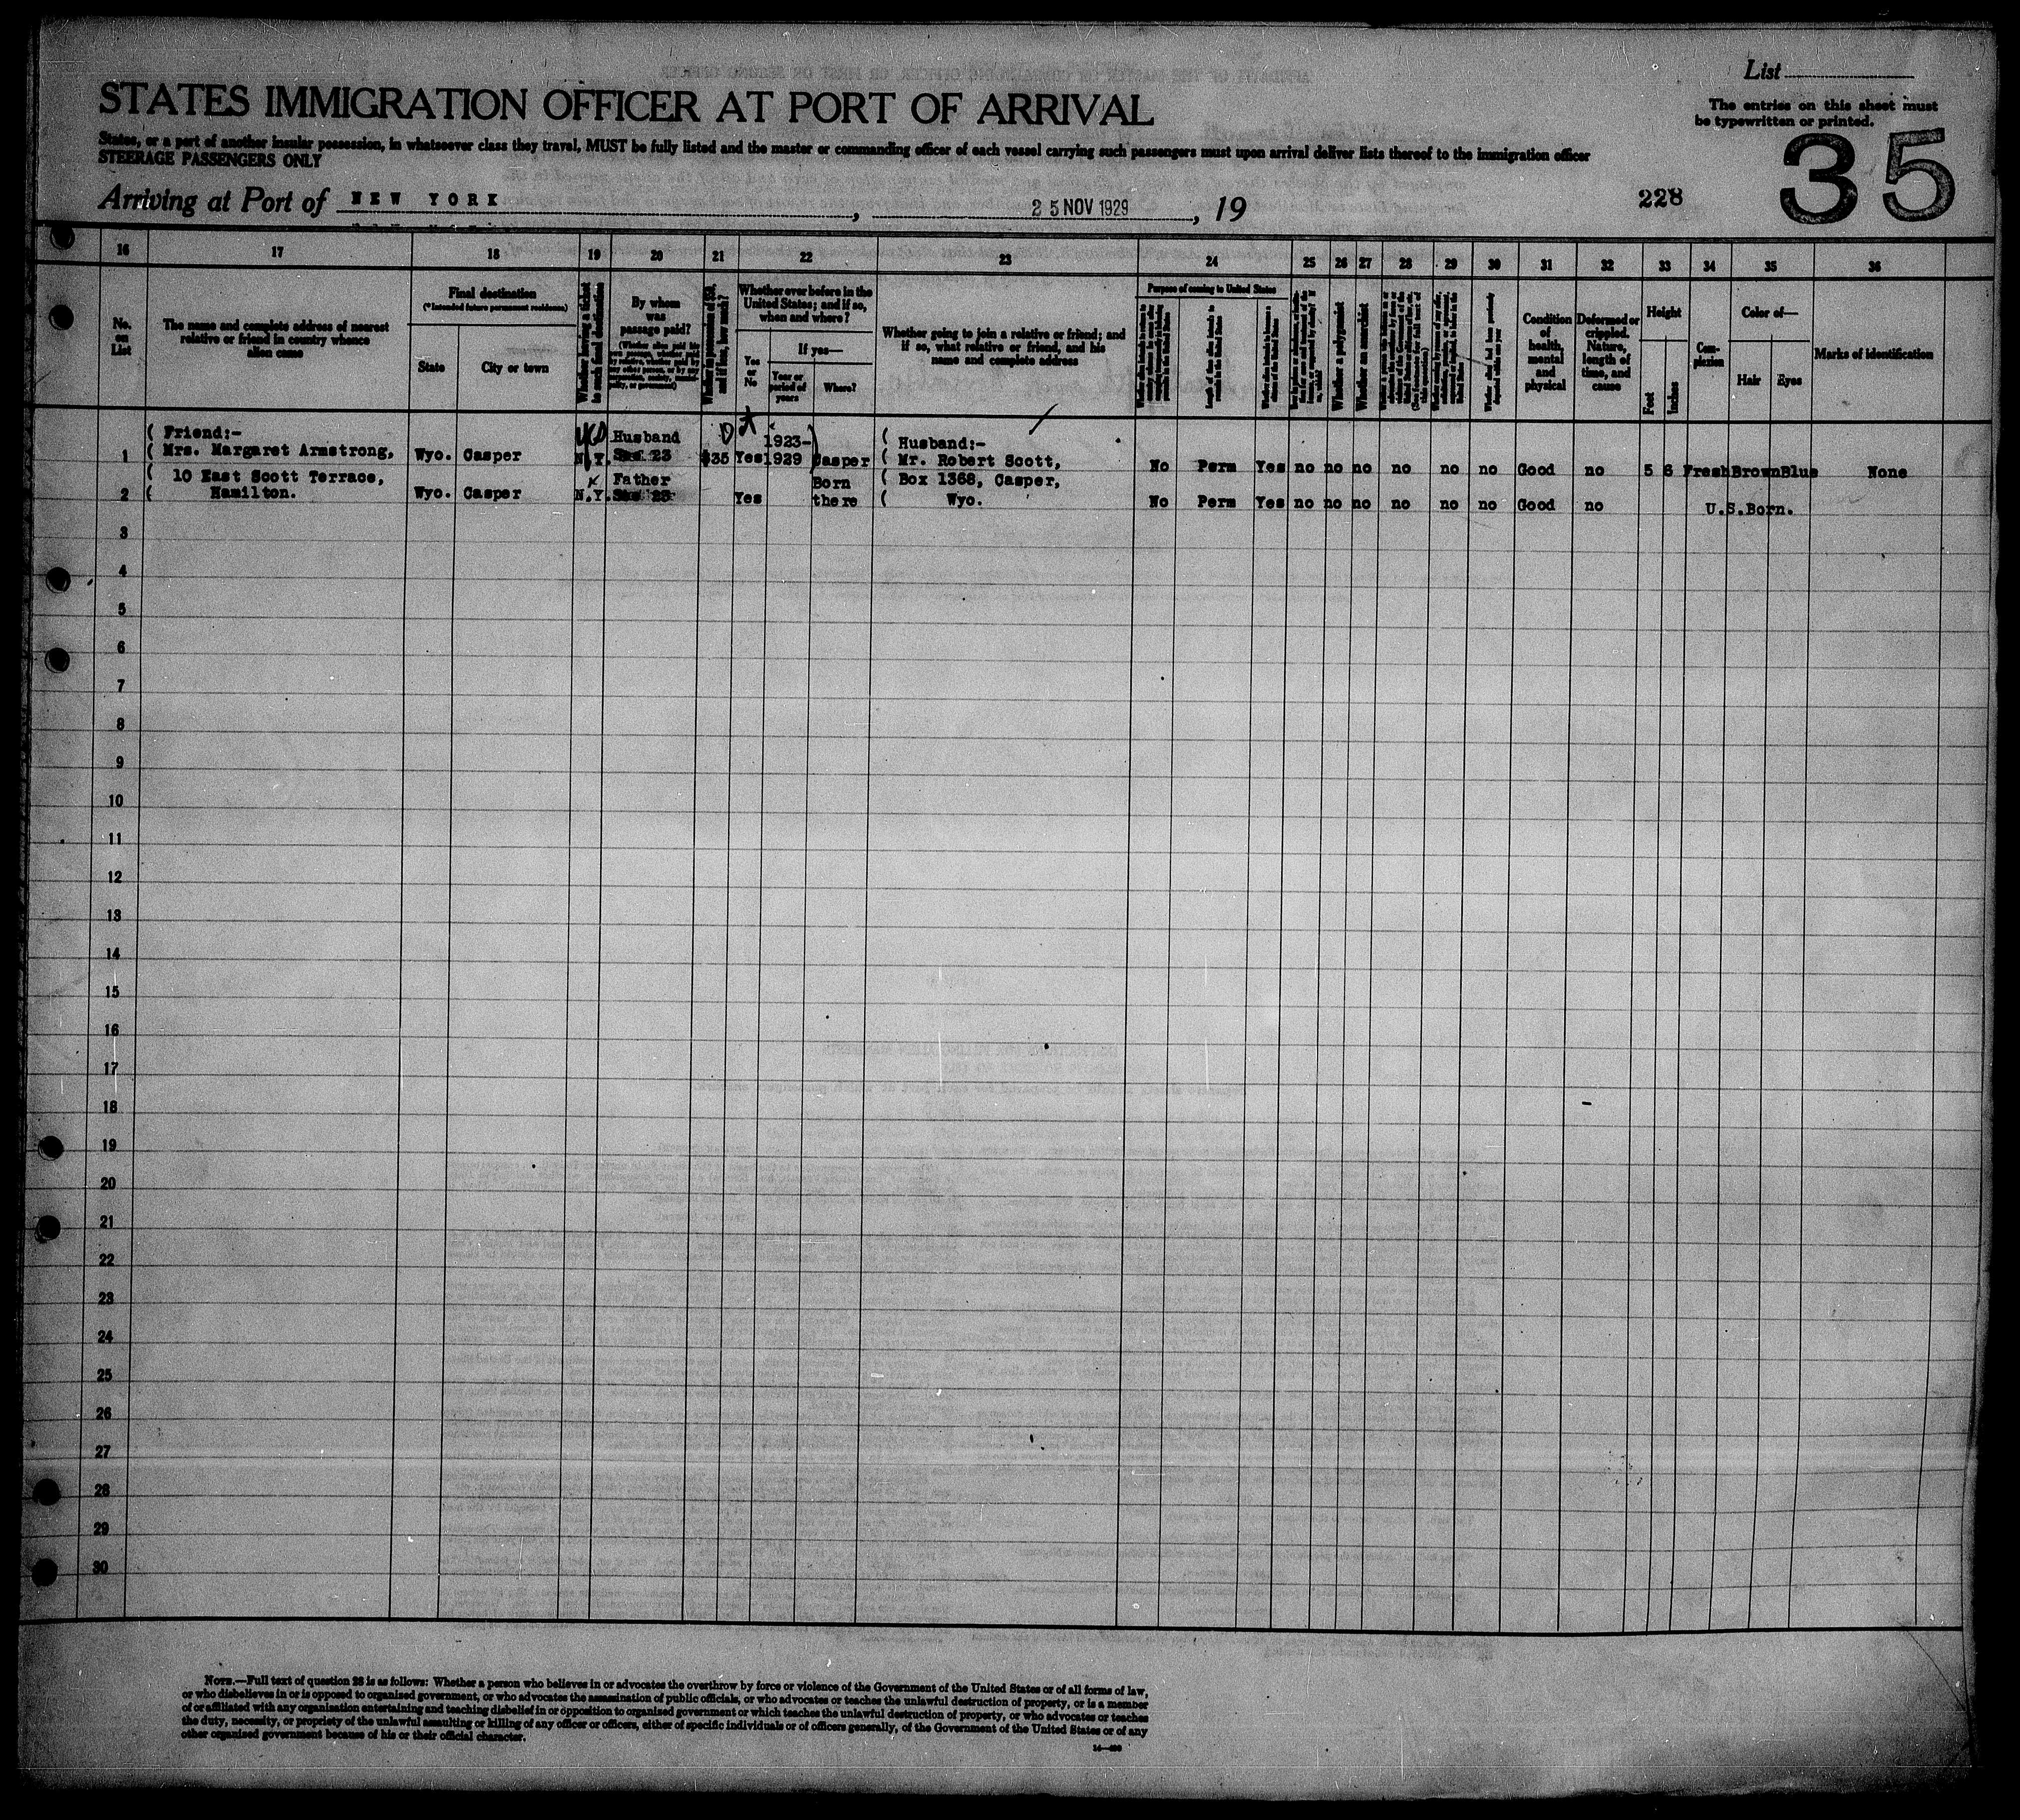 List
STATES IMMIGRATION OFFICER AT PORT OF ARRIVAL
The entries on this sheet must
be typewritten or printed.
States, or a part of another insular possession, in whatsoever class they travel, MUST be fully listed and the master or commanding officer of each vessel carrying such passengers must upon arrival deliver lists thereof to the immigration officer
STEERAGE PASSENGERS ONLY
35
Arriving at Port of NEW YORK, 25 NOV 1929, 19
228
16 17 18 19 20 21 22 23 24 25 26 27 28 29 30 31 32 33 34 35 36
No.
on
List
The name and complete address of nearest
relative or friend in country whence
alien came
Final destination
(*Intended future permanent residence)
State
City or town
Whether having a ticket
to such final destination
By whom
was
passage paid?
Whether in possession of $50,
and if less, how much?
Whether ever before in the
United States; and if so,
when and where?
Yes
or
No
If yes—
Year or
period of
years
Where?
Whether going to join a relative or friend; and
if so, what relative or friend, and his
name and complete address
Purpose of coming to United States
Length of time alien intends to
remain in the United States
Whether a polygamist
Whether an anarchist
Condition
of
health,
mental
and
physical
Deformed or
crippled.
Nature,
length of
time, and
cause
Height
Feet
Inches
Com-
plexion
Color of—
Hair
Eyes
Marks of identification
( Friend:-
1 ( Mrs. Margaret Armstrong, Wyo. Casper N.Y. Husband $35 Yes 1923-1929 Casper ( Husband:- ( Mr. Robert Scott, No Perm Yes no no no no no no Good no 5 6 Fresh Brown Blue None
( 10 East Scott Terrace, Father Born ( Box 1368, Casper,
2 ( Hamilton. Wyo. Casper N.Y. Yes there ( Wyo. No Perm Yes no no no no no no Good no U.S.Born.
3
4
5
6
7
8
9
10
11
12
13
14
15
16
17
18
19
20
21
22
23
24
25
26
27
28
29
30
NOTE.—Full text of question 28 is as follows: Whether a person who believes in or advocates the overthrow by force or violence of the Government of the United States or of all forms of law,
or who disbelieves in or is opposed to organised government, or who advocates the assassination of public officials, or who advocates or teaches the unlawful destruction of property, or is a member
of or affiliated with any organisation entertaining and teaching disbelief in or opposition to organised government or which teaches the unlawful destruction of property, or who advocates or teaches
the duty, necessity, or propriety of the unlawful assaulting or killing of any officer or officers, either of specific individuals or of officers generally, of the Government of the United States or of any
other organised government because of his or their official character.